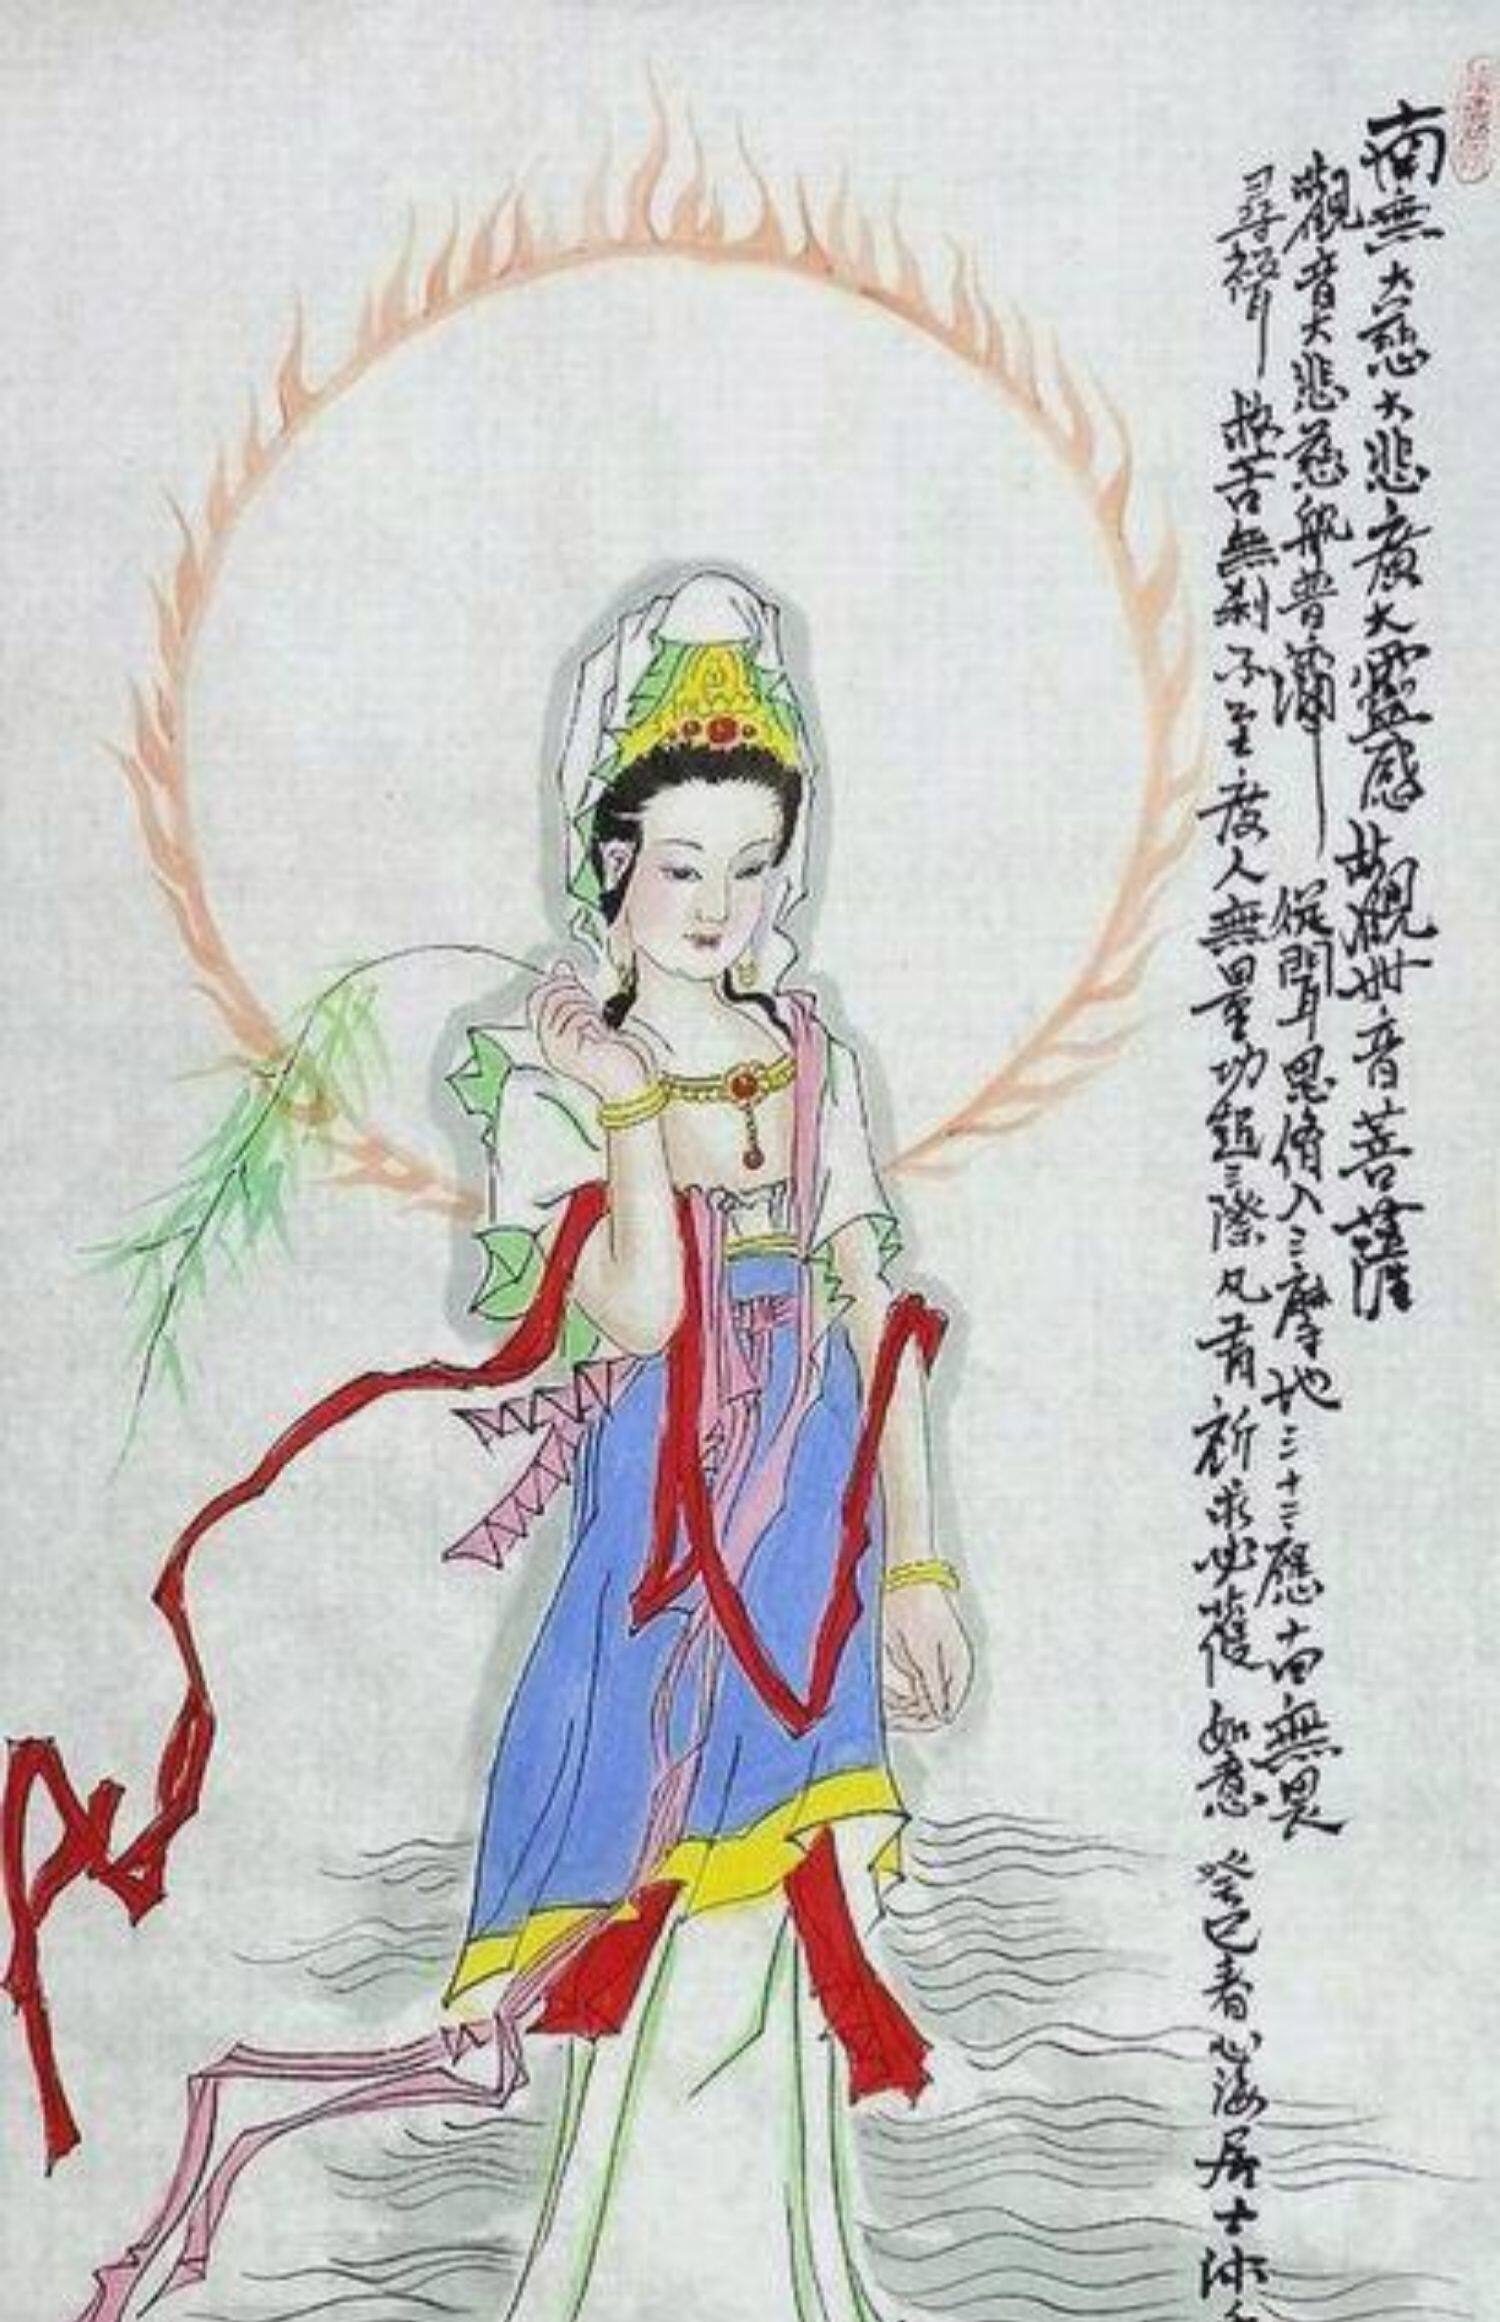 南無大慈大悲廣大靈感觀世音菩薩
觀音大悲慈航普濟從聞思修入三摩地三十二應十四無畏
尋聲救苦無刹不至度人無量功超三際凡有祈求必獲如意癸巳春心海居士沐